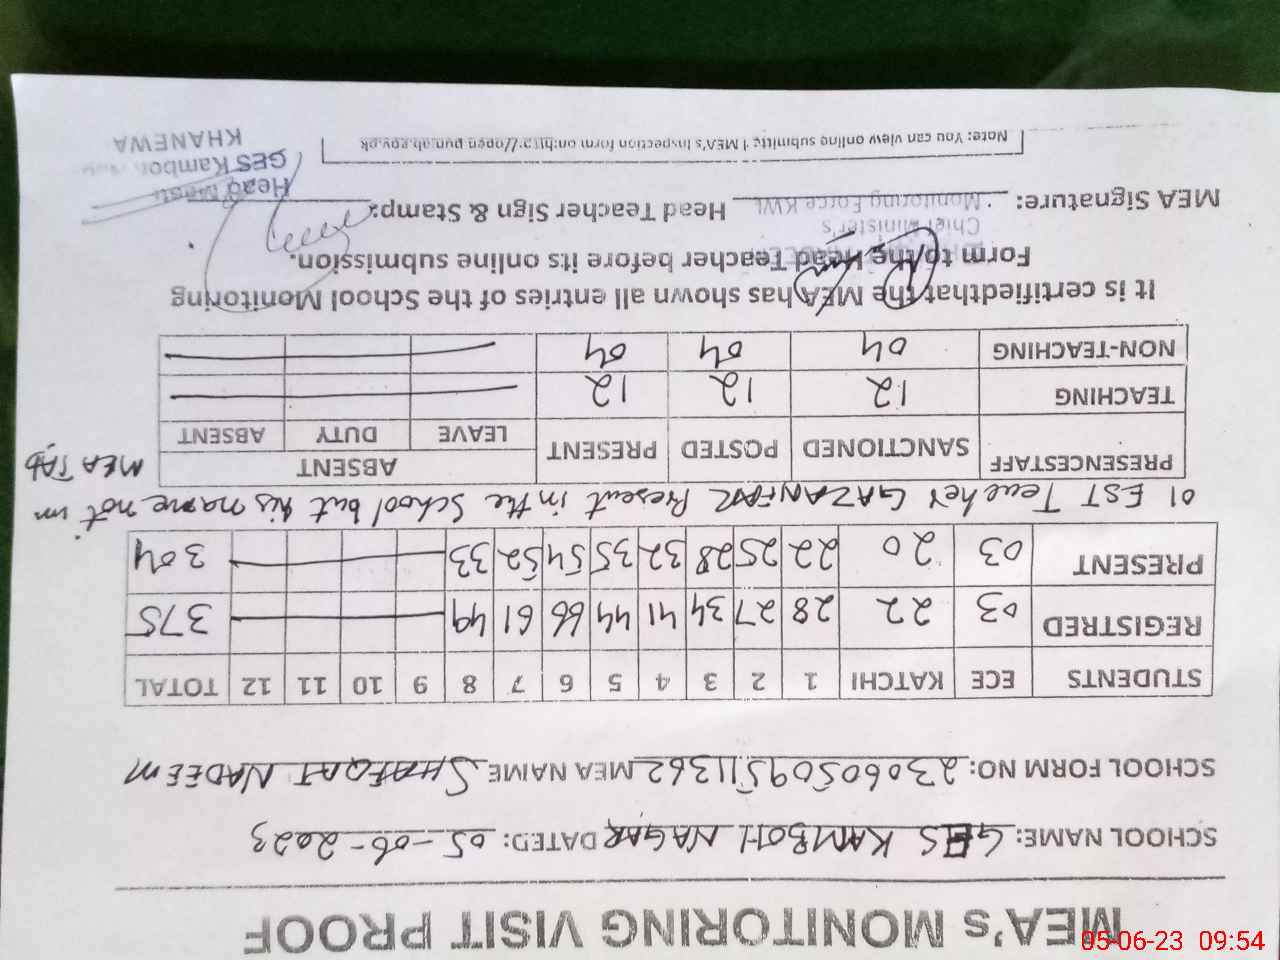 MEA's MONITORING VISIT PROOF
SCHOOL NAME: GES KAMBOH NAGAR DATED: 05-06-2023
SCHOOL FORM NO: 23060509511362 MEA NAME SHAFQAT NADEEM
STUDENTS ECE KATCHI 1 2 3 4 5 6 7 8 9 10 11 12 TOTAL
REGISTRED 03 22 28 27 34 41 44 66 61 49 375
PRESENT 03 20 22 25 28 32 35 54 52 33 304
01 EST Teacher GAZANFAR Present in the School but his name not in MEA TAB
PRESENCESTAFF SANCTIONED POSTED PRESENT ABSENT
LEAVE DUTY ABSENT
TEACHING 12 12 12
NON-TEACHING 04 04 04
It is certifiedthat the MEA has shown all entries of the School Monitoring
Form to the Head Teacher before its online submission.
Chief Minister's
MEA Signature: Monitoring Force KWL Head Teacher Sign & Stamp:
Head
GES Kamboh
KHANEWA
Note: You can view online submitte MEA's Inspection form on:http://open.punjab.gov.pk
05-06-23 09:54